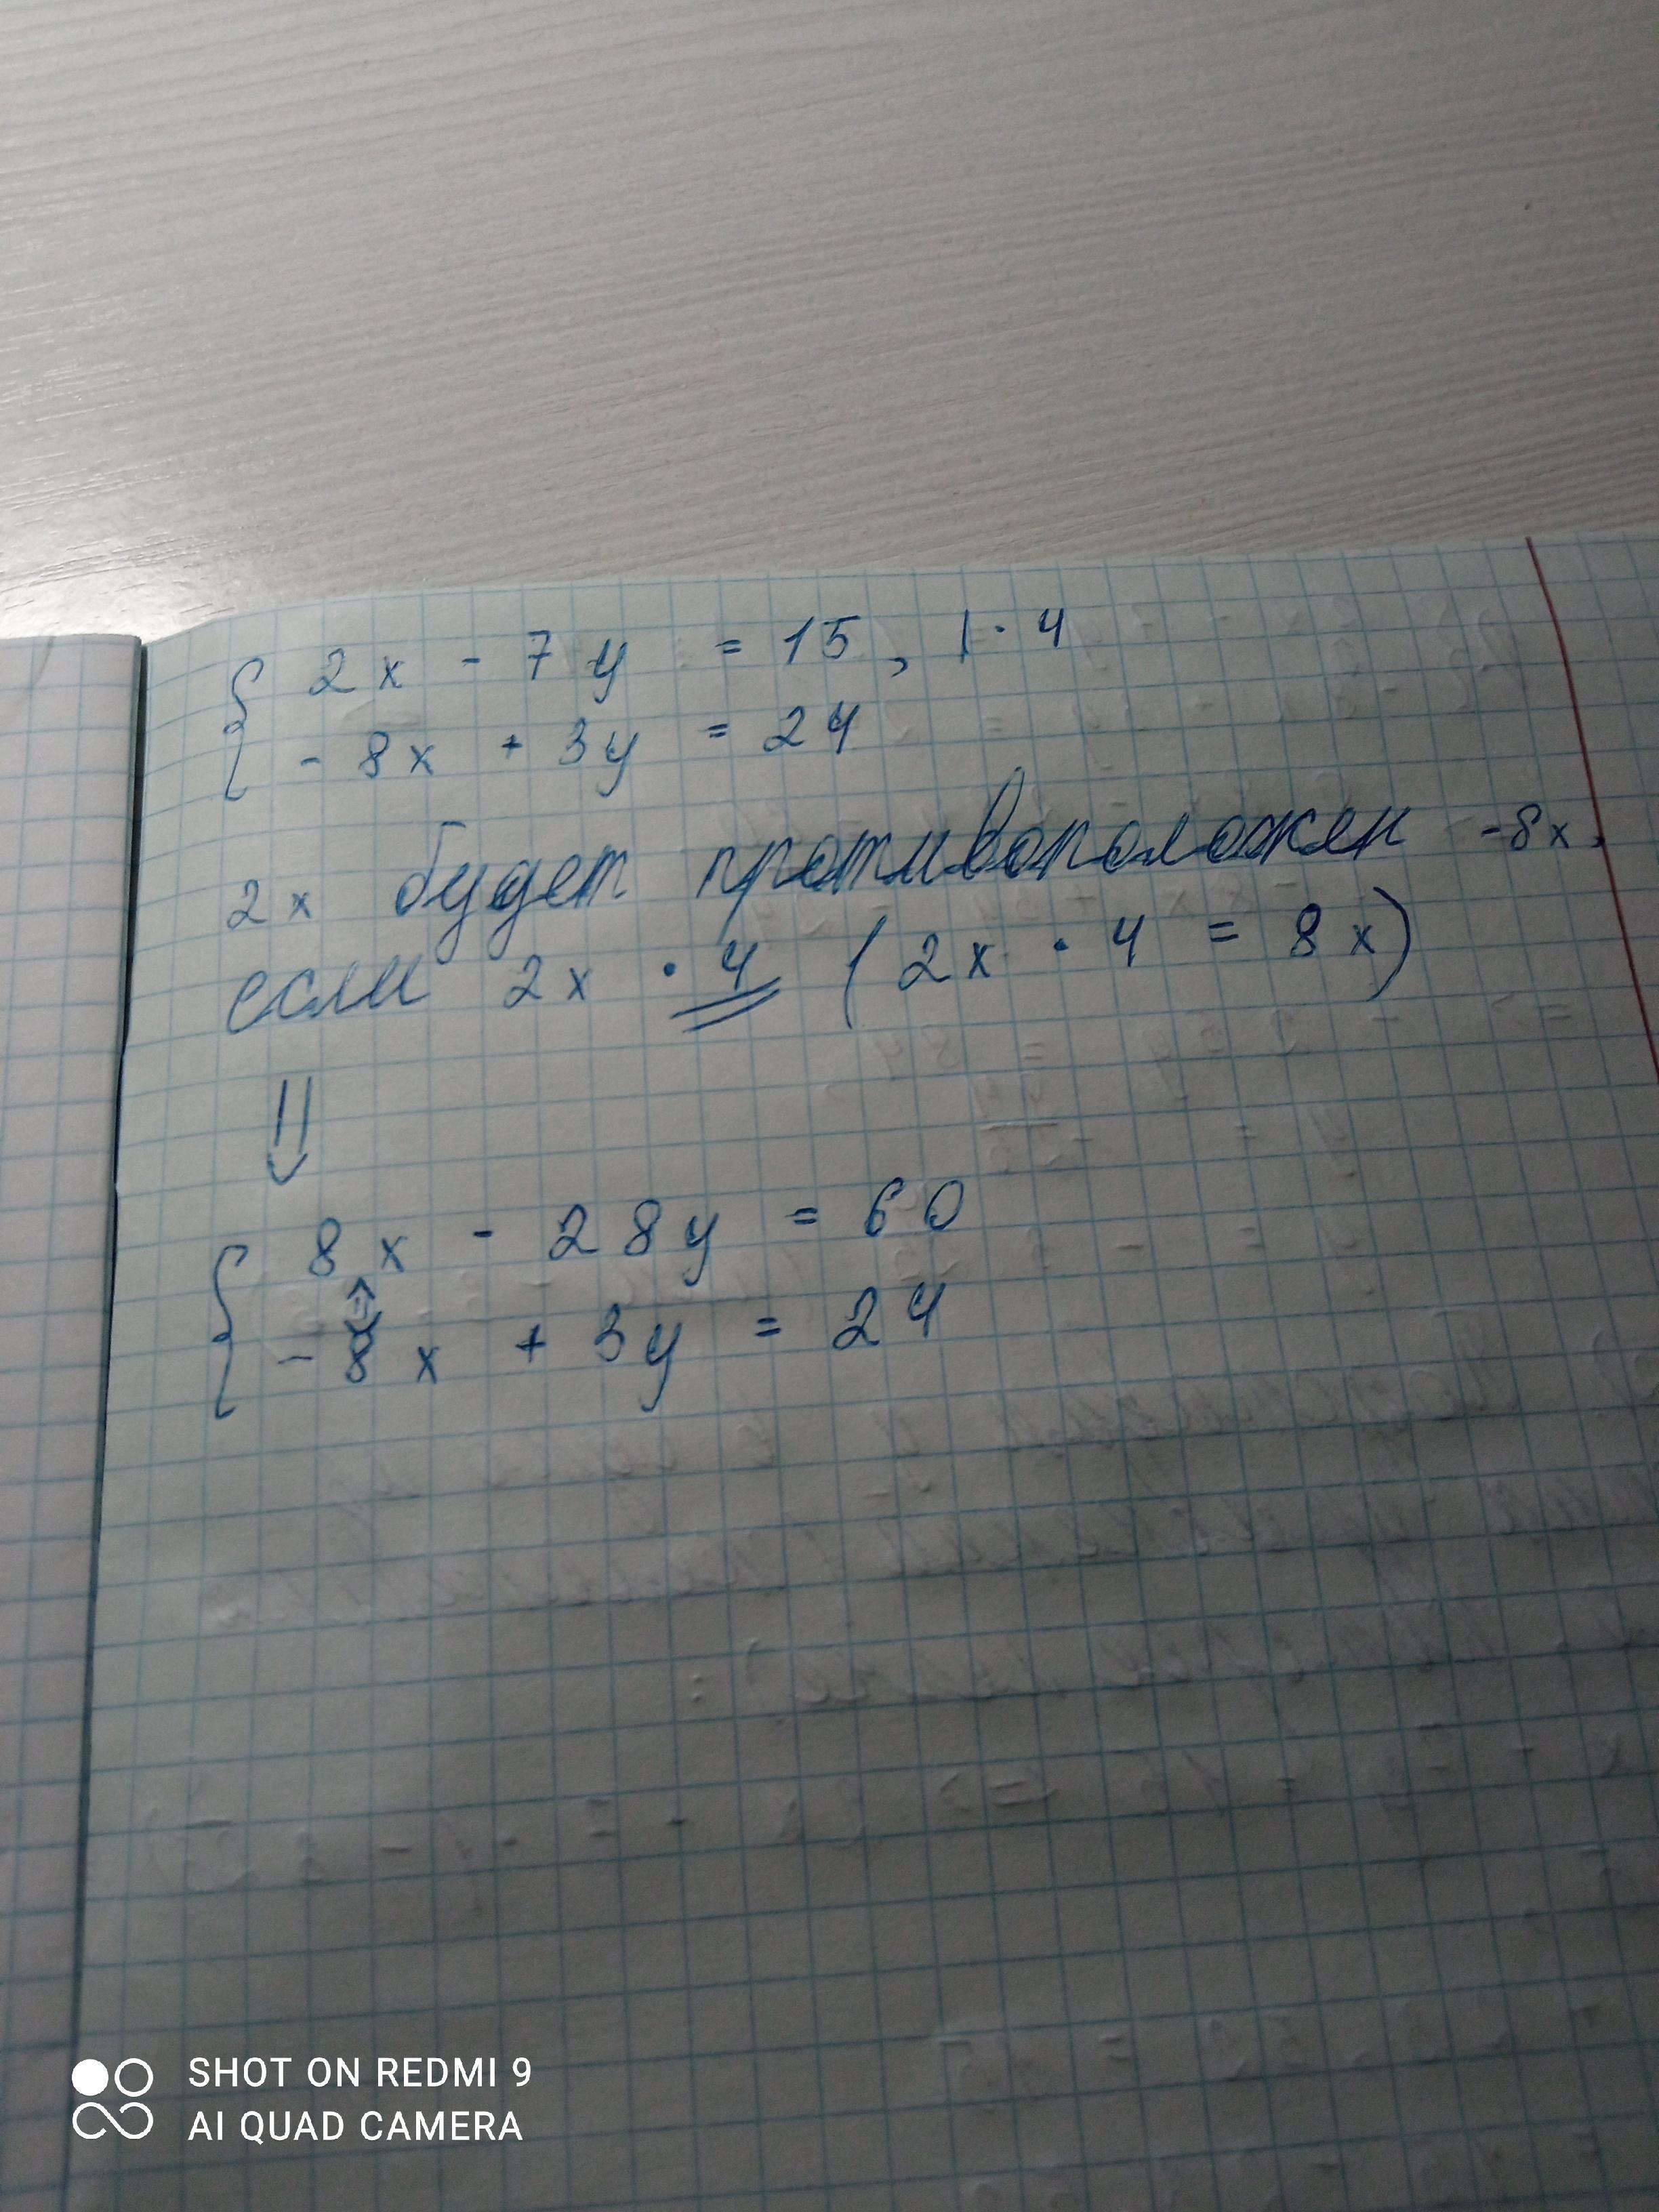 2x - 7y = 15, | · 4
- 8x + 3y = 24
2x будет противоположен -8x,
если 2x · 4 (2x · 4 = 8x)
8x - 28y = 60
- 8x + 3y = 24
SHOT ON REDMI 9
AI QUAD CAMERA